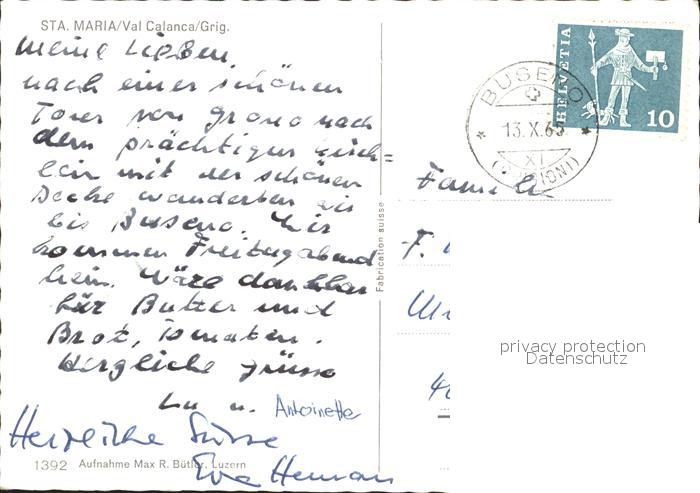 STA. MARIA/Val Calanca/Grig.
meine Lieben,
nach einer schönen
Tour von Grono nach
dem prächtigen Kirch=
lein mit der schönen
Decke wanderten wir
bis Buseno. Wir
kommen Freitagabend
heim. Wäre dankbar
für Butter und
Brot, Tomaten.
Herzliche Grüsse
Lu u. Antoinette
Herzliche Grüsse
Eva
1392 Aufnahme Max R. Bütler, Luzern
Fabrication suisse
HELVETIA
10
BUSENO
13.X.65
XI
(GRIGIONI)
Familie
F.
privacy protection
Datenschutz